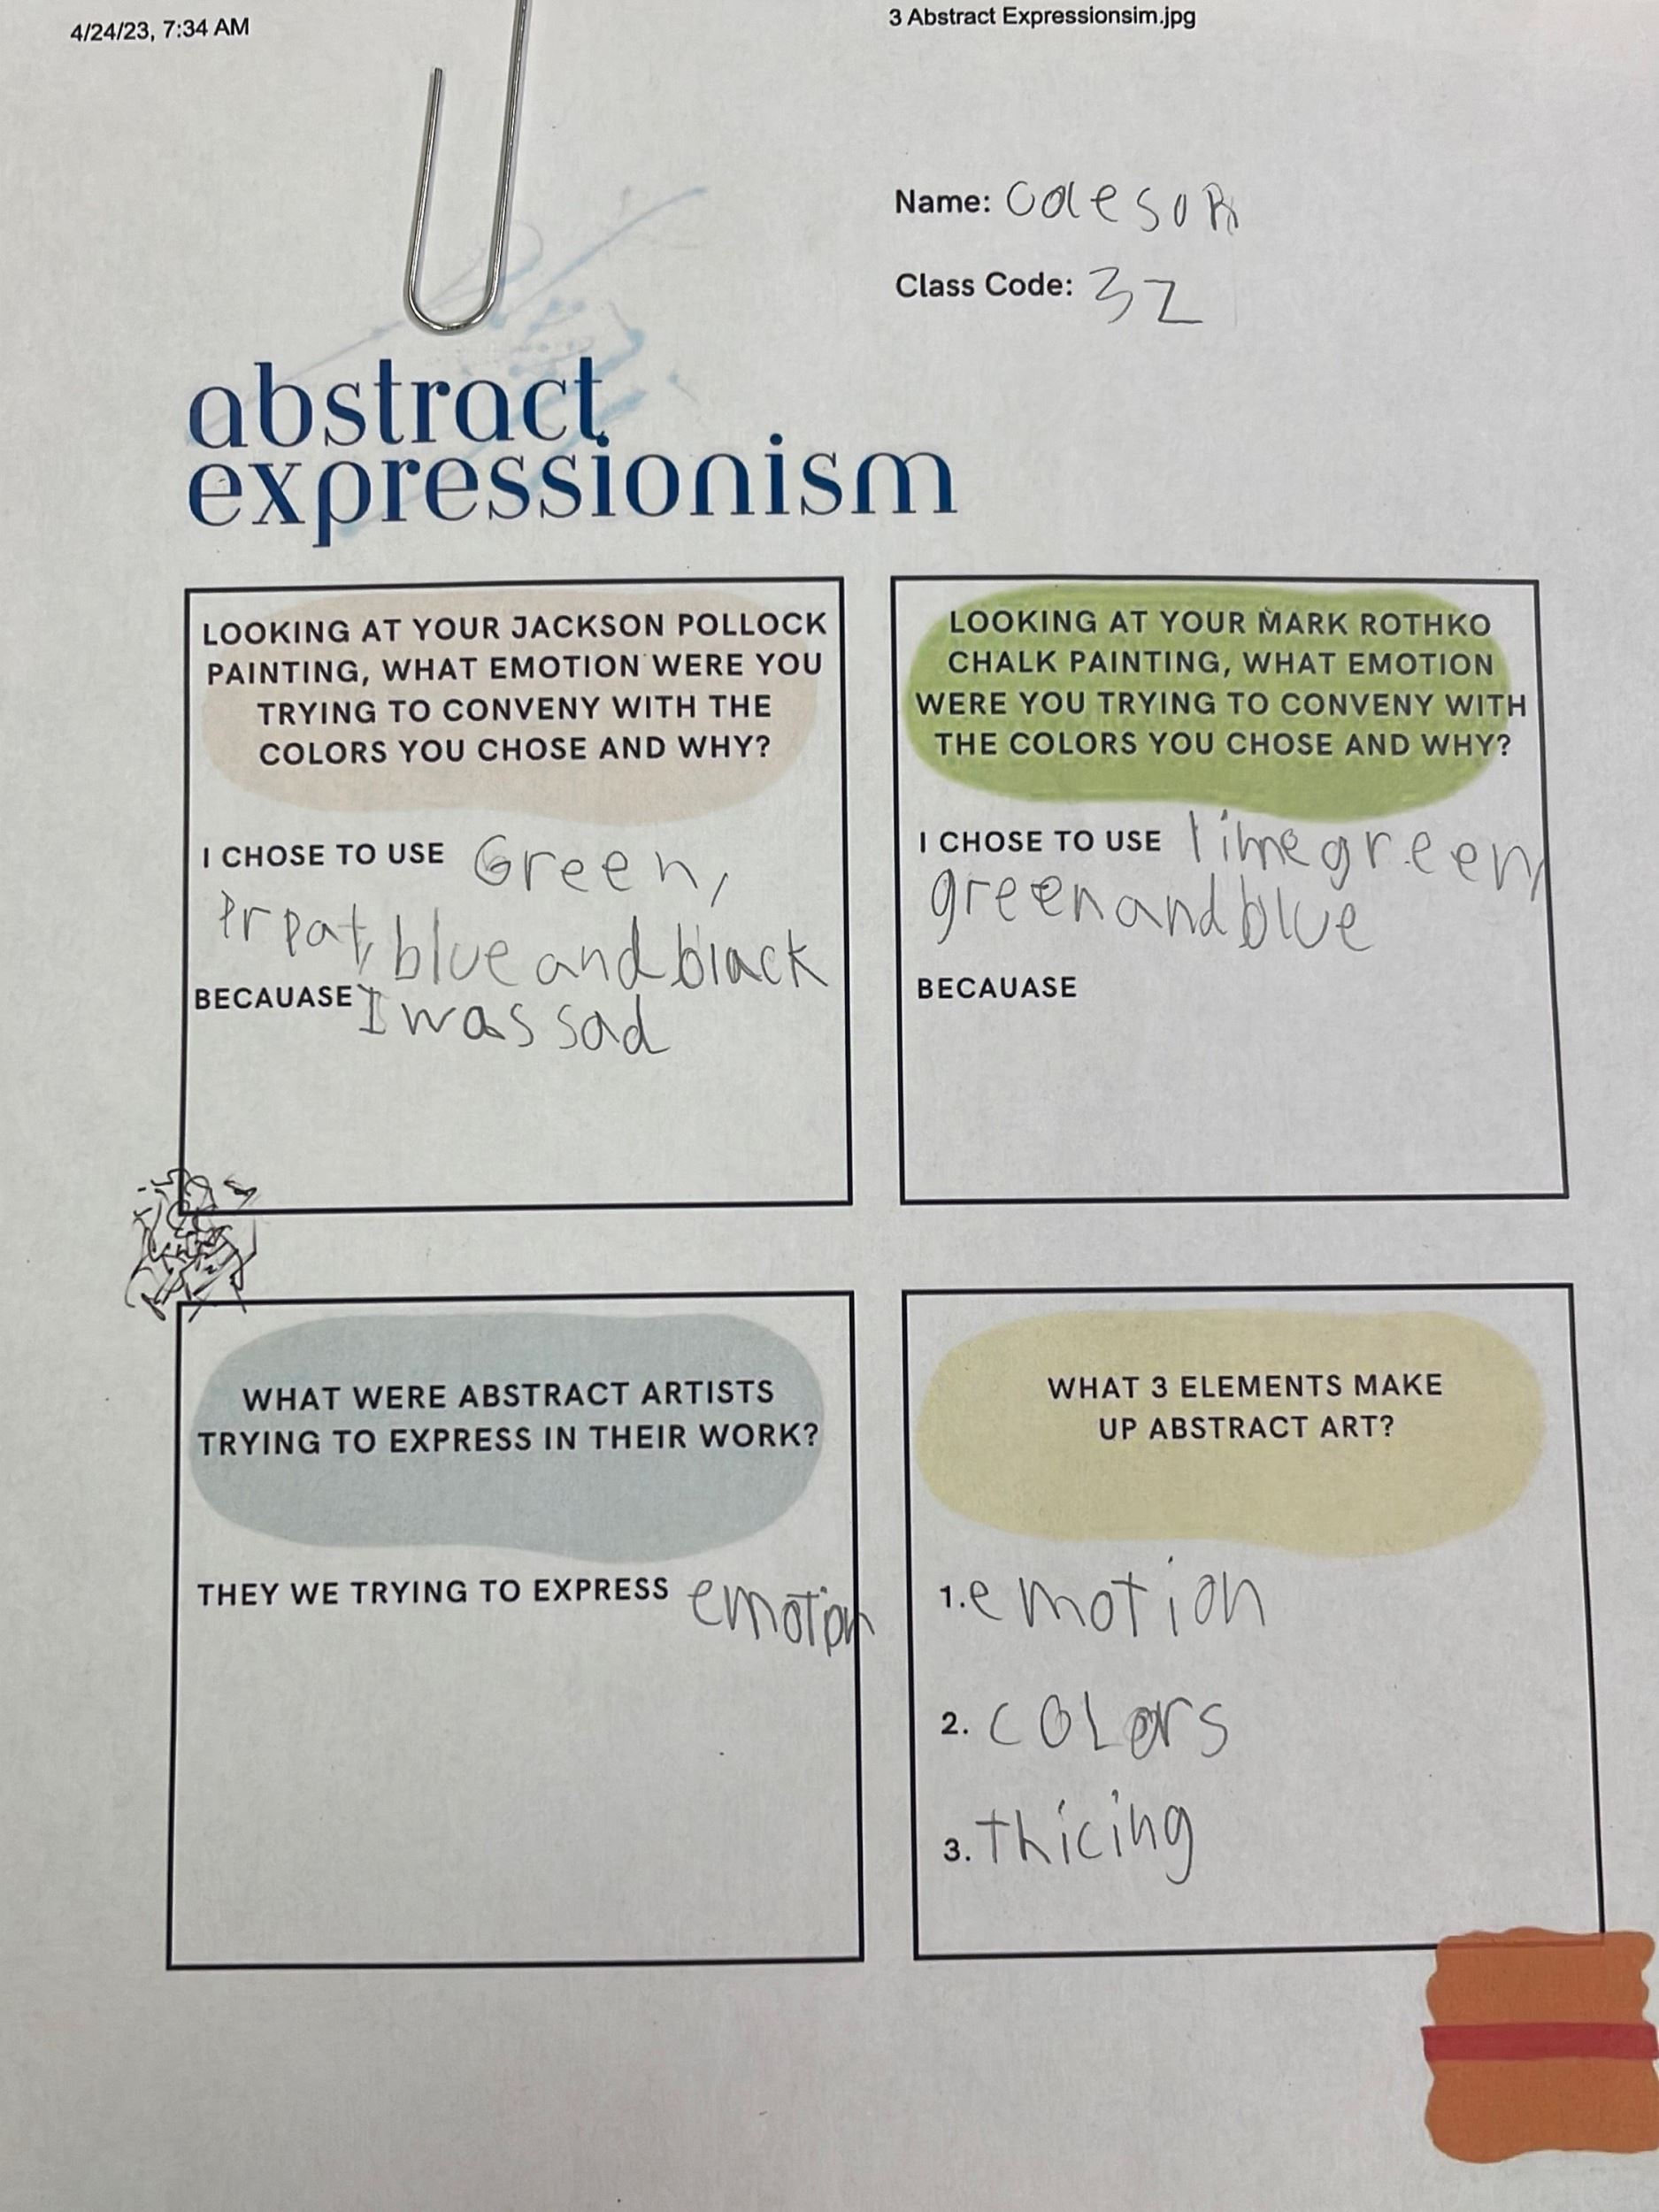 4/24/23, 7:34 AM
3 Abstract Expressionsim.jpg
Name:
Class Code: 3Z
abstract
expressionism
LOOKING AT YOUR JACKSON POLLOCK
PAINTING, WHAT EMOTION WERE YOU
TRYING TO CONVENY WITH THE
COLORS YOU CHOSE AND WHY?
I CHOSE TO USE Green,
Prpat, blue and black
BECAUASE I was sad
LOOKING AT YOUR MARK ROTHKO
CHALK PAINTING, WHAT EMOTION
WERE YOU TRYING TO CONVENY WITH
THE COLORS YOU CHOSE AND WHY?
I CHOSE TO USE lime green,
green and blue
BECAUASE
WHAT WERE ABSTRACT ARTISTS
TRYING TO EXPRESS IN THEIR WORK?
THEY WE TRYING TO EXPRESS emotion
WHAT 3 ELEMENTS MAKE
UP ABSTRACT ART?
1. emotion
2. colors
3. thicing